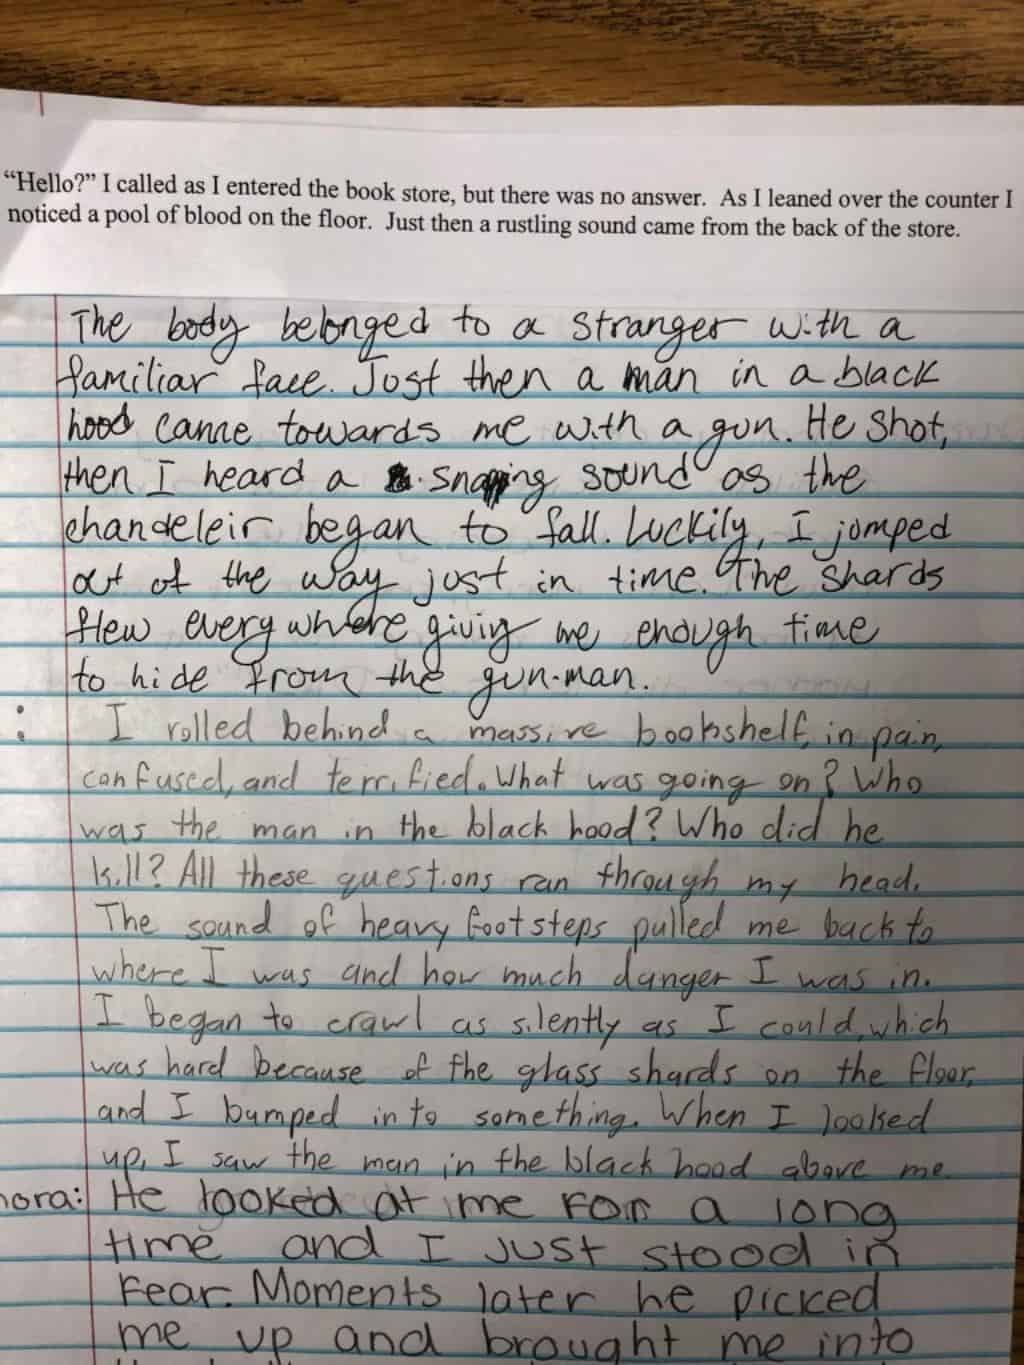 “Hello?” I called as I entered the book store, but there was no answer. As I leaned over the counter I
noticed a pool of blood on the floor. Just then a rustling sound came from the back of the store.
The body belonged to a stranger with a
familiar face. Just then a man in a black
hood came towards me with a gun. He shot,
then I heard a snapping sound as the
chandeleir began to fall. Luckily, I jumped
out of the way just in time. The shards
flew everywhere giving me enough time
to hide from the gun-man.
: I rolled behind a massive bookshelf, in pain,
confused, and terrified. What was going on? Who
was the man in the black hood? Who did he
kill? All these questions ran through my head.
The sound of heavy footsteps pulled me back to
where I was and how much danger I was in.
I began to crawl as silently as I could, which
was hard because of the glass shards on the floor,
and I bumped into something. When I looked
up, I saw the man in the black hood above me.
nora: He looked at me for a long
time and I just stood in
fear. Moments later he picked
me up and brought me into